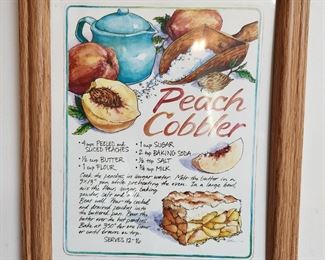 Peach
Cobbler
• 4 cups PEELED and • 1 cup SUGAR
SLICED PEACHES • 2 tsp BAKING SODA
• ½ cup BUTTER • ½ tsp SALT
• 1 cup FLOUR • ¾ cup MILK
Cook the peaches in sugar water. Melt the butter in a
9"x13" pan while preheating the oven. In a large bowl,
mix the flour, sugar, baking
powder, salt and milk.
Beat well. Pour the cooked
and drained peaches into
the buttered pan. Pour the
batter over the hot peaches.
Bake at 350° for one hour
or until brown on top.
SERVES 12-16